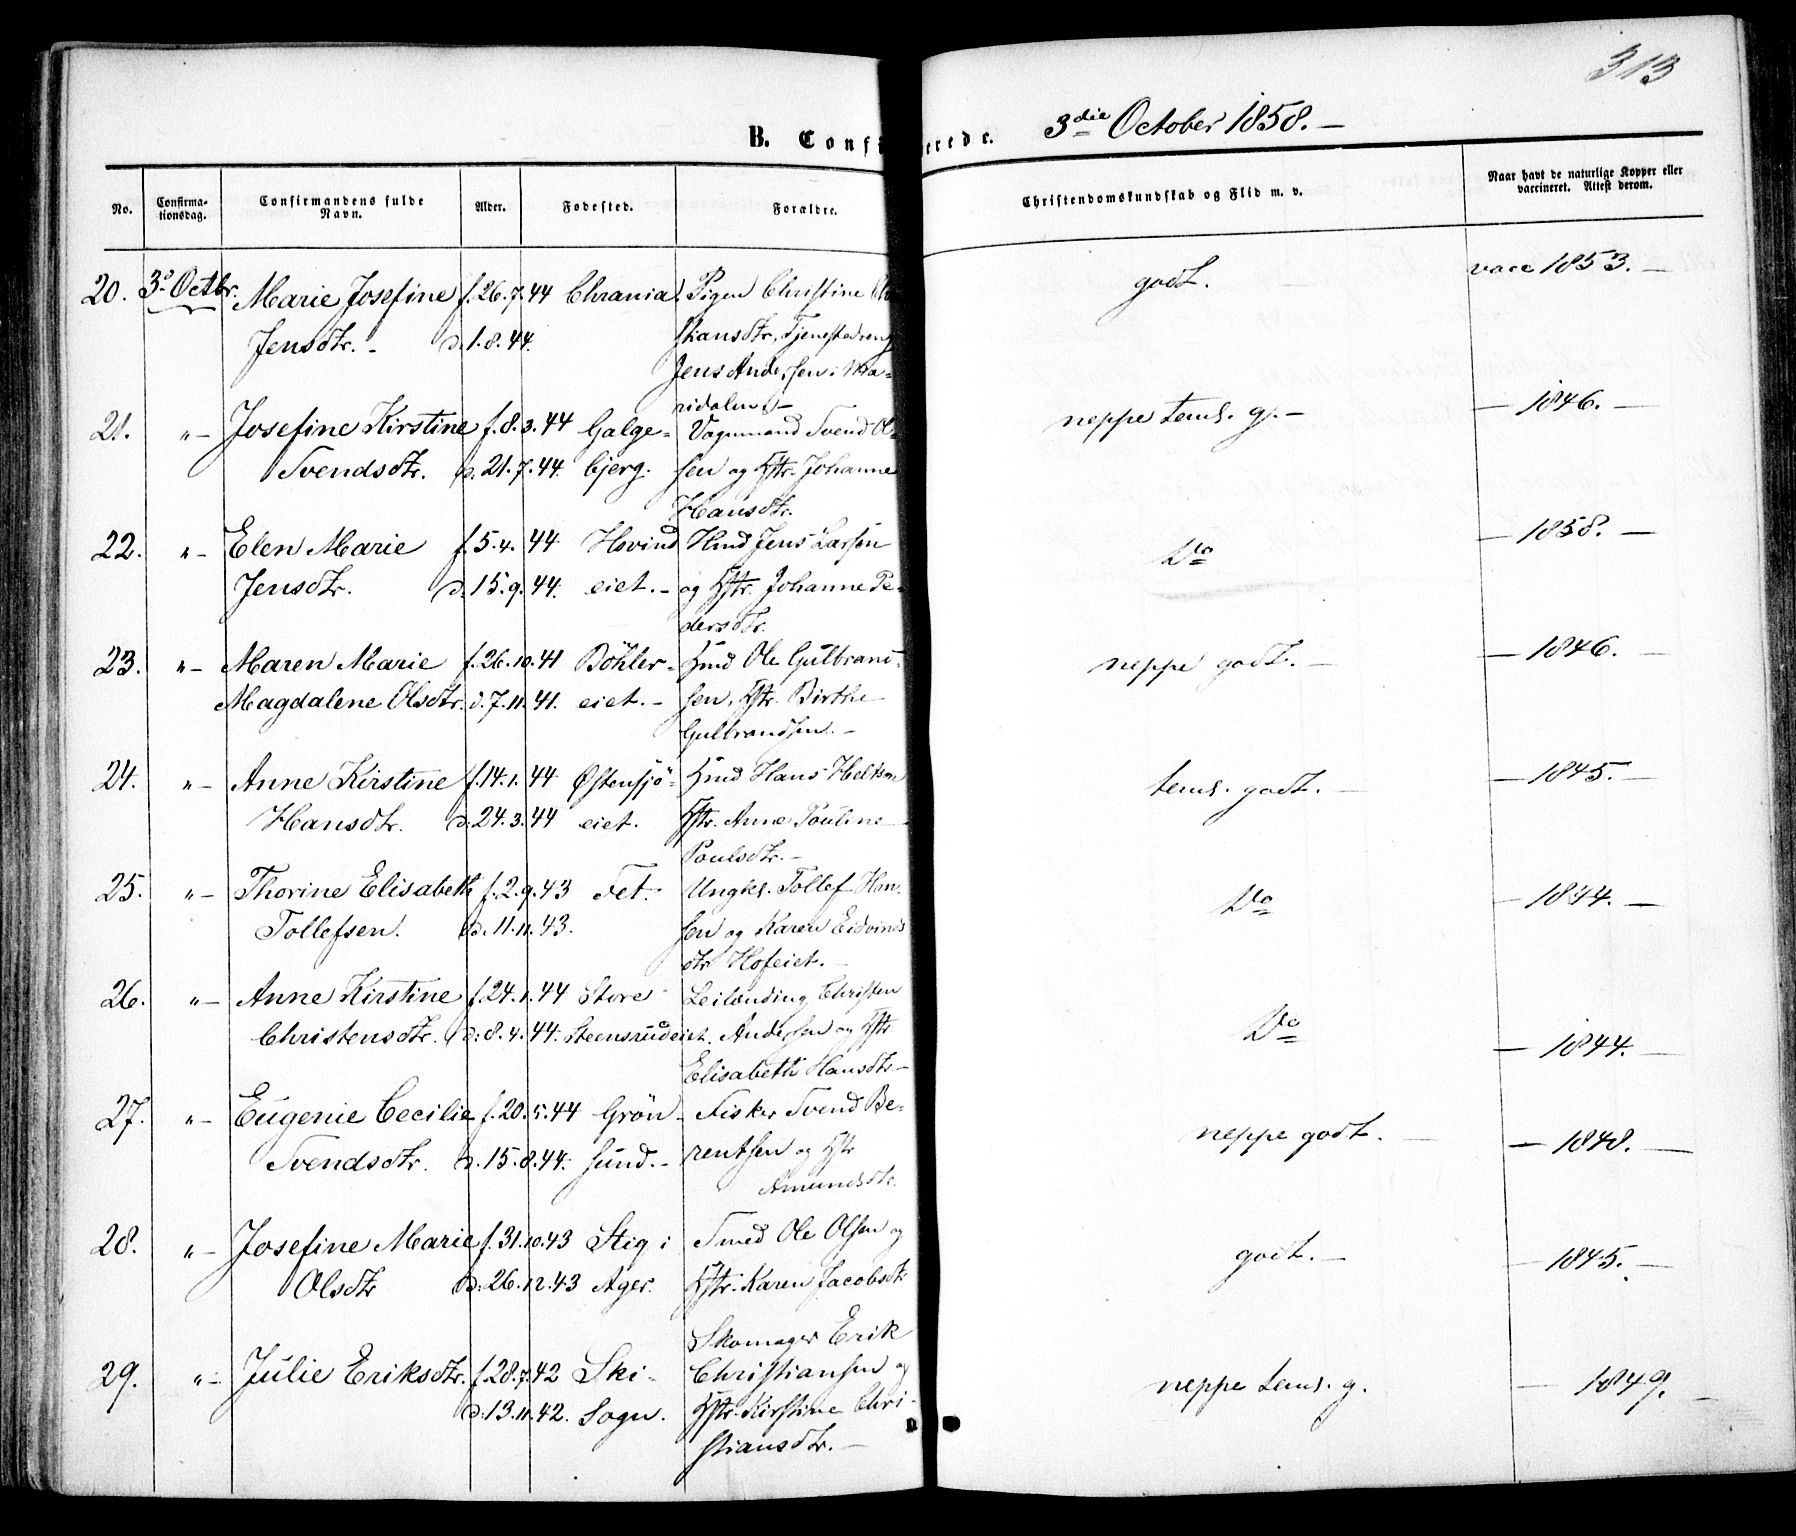 313
B. Confi rerede. 3die October 1858. —
No. Confirma-tionsdag. Confirmandens fulde Navn. Alder. Fødested. Forældre. Christendomskundskab og Flid m. v. Naar havt de naturlige Kopper eller vaccineret. Attest derom.
20. 3d Octbr. Marie Josefine f. 26.7.44 Chrania. Pigen Christine Chri godt. vacc 1853. —
Jensdtr. - d. 1.8.44. stiansdtr, Tjenestedreng
Jens Andersen i Ma-
ridalen. —
21. " — Josefine Kirstine f. 8.3.44 Galge- Vognmand Svend Ol- neppe teml. g. — — 1846. —
Svendsdtr. d. 21.7.44. bjerg. sen og Hstr. Johanne
Hansdtr.
22. " — Elen Marie f. 5.4.44 Hovind Hmd Jens Larsen Do — 1858. —
Jensdtr. d. 15.9.44. eiet. — og Hstr. Johanne Pe-
dersdtr.
23. " — Maren Marie f. 26.10.41 Böhler- Hmd Ole Gulbrand- neppe godt. — — 1846. —
Magdalene Olsdtr. d. 7.11.41. eiet. — sen, Hstr. Birthe
Gulbrandsen. —
24. " — Anne Kirstine f. 14.1.44 Østensjö- Hmd Hans teml. godt. — — 1845. —
Hansdtr. d. 24.3.44 eiet. Hstr. Anne Pouline
Poulsdtr. —
25. " — Thorine Elisabeth f. 2.9.43 Fet. Ungkl. Tollef Han- Do — 1844. —
Tollefsen. d. 11.11.43. sen og Karen Eidvinds
dtr Hofeiet. —
26. " — Anne Kirstine f. 24.1.44 Store Leilænding Christen Do — 1844. —
Christensdtr. d: 8.4.44. Steensrudeiet. Andersen og Hstr
Elisabeth Hansdtr —
27. " — Eugenie Cecilie f. 20.5.44 Grön- Fisker Svend Be- neppe godt. — — 1848. —
Svendsdtr. d. 15.8.44. sund. — rentsen og Hstr
Amundsdtr.
28. " — Josefine Marie f. 31.10.43 Stig i Smed Ole Olsen og godt. — — 1845. —
Olsdtr d. 26.12.43 Ager. Hstr. Karen Jacobsdtr
29. " — Julie Eriksdtr. f. 28.7.42 Ski- Skomager Erik neppe teml. g. — 1849. —
d. 13.11.42. Sogn. Christiansen og
Hstr. Kirstine Chri-
stiansdtr. —